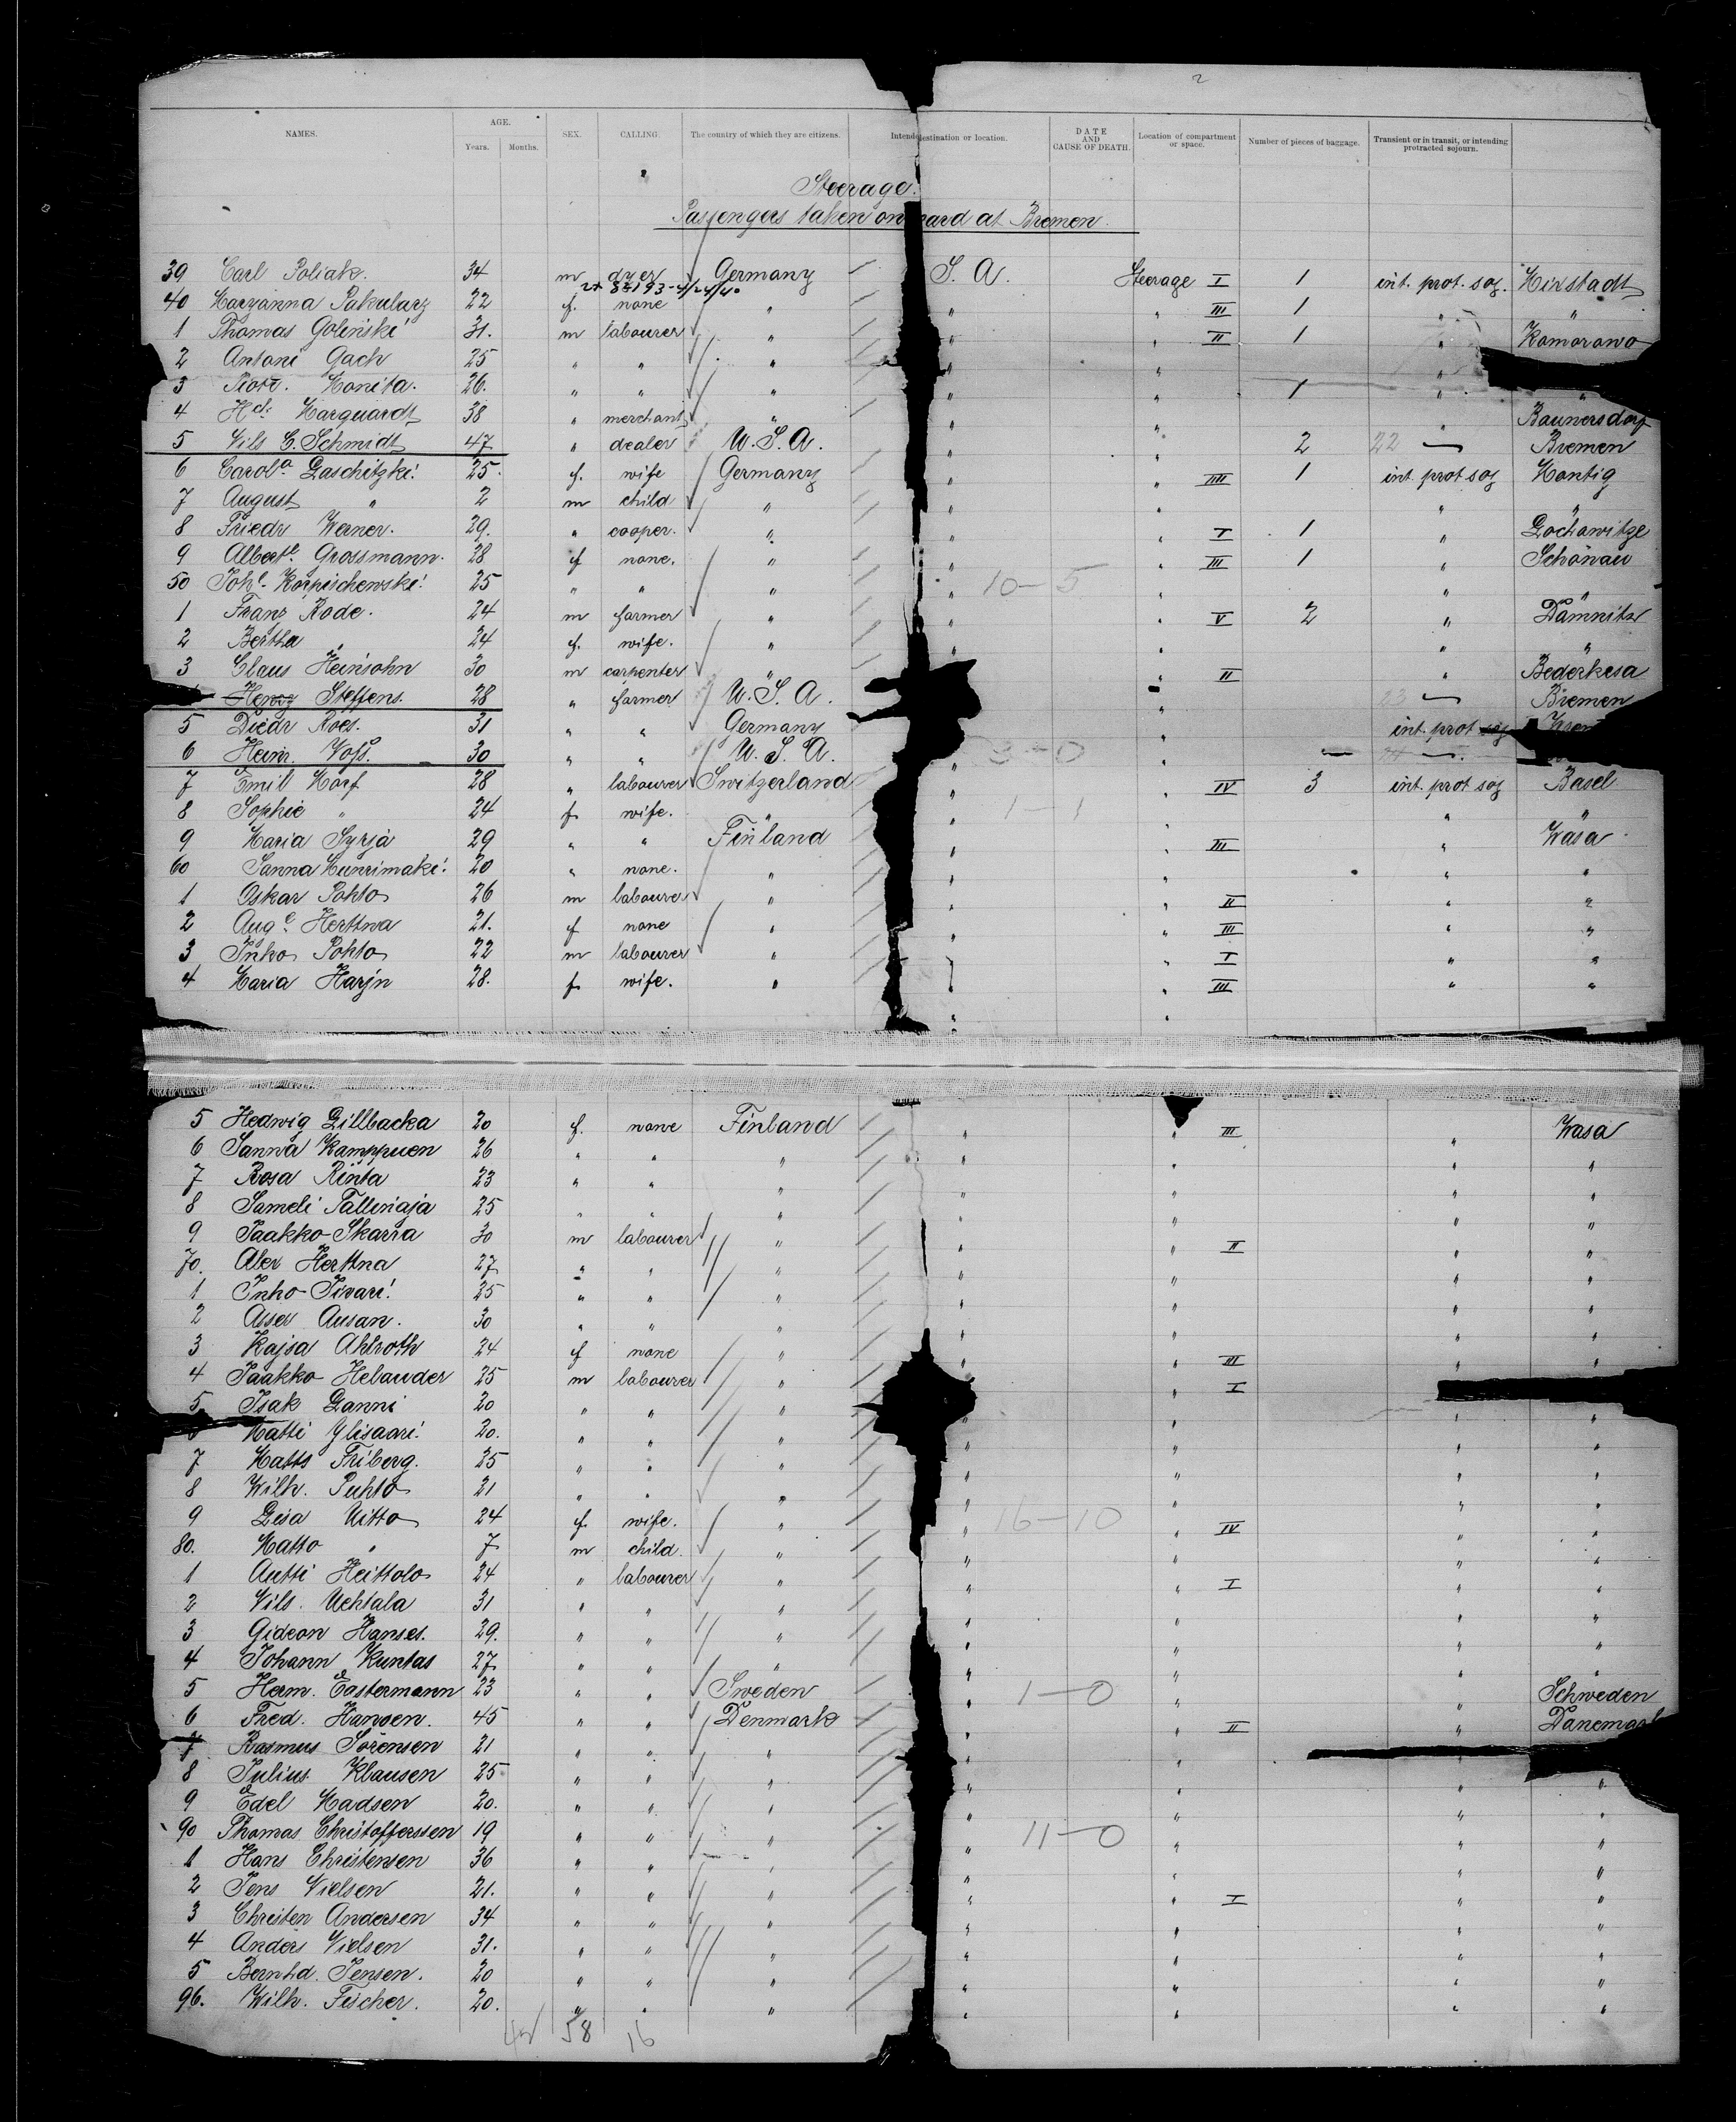 2
NAMES. AGE. Years. Months. SEX. CALLING. The country of which they are citizens. Intende destination or location. DATE AND CAUSE OF DEATH. Location of compartment or space. Number of pieces of baggage. Transient or in transit, or intending protracted sojourn.
Steerage.
Passengers taken on oard at Bremen.
39 Carl Poliak. 34 m dyer Germany S. A. Steerage I 1 int. prot. soj.
40 Maryanna Pakulary 22 f. none " " " III 1 " "
1 Thomas Golinski 31. m labourer " " " II 1 " Komorowo
2 Antoni Gach 25 " " " " " "
3 Piotr. Konita. 26. " " " " " 1 " "
4 Hch. Marquardt 38 " merchant " " " " Baunersdorf
5 Nils C. Schmidt 47 " dealer U. S. A. " " 2 22 — Bremen
6 Carola Laschitzki 25. f. wife Germany " " IIII 1 int. prot soj Montig
7 August " 2 m child " " " " "
8 Friedr Werner. 29. " cooper. " " " I 1 " Lochowitze
9 Alberte Grossmann. 28 f none. " " " III 1 " Schönau
50 Joh. Korpischewski 25 " " " " 10-5 " " "
1 Franz Rode. 24 m farmer " " " V 2 " Damnitz
2 Bertha " 24 f. wife. " " " " "
3 Claus Heinsohn 30 m carpenter " " " II " Bederkesa
Henry Steffens. 28 " farmer U. S. A. " " 23 — Bremen
5 Diedr Roes. 31 " " Germany " int. prot soj
6 Heinr. Voss. 30 " " U. S. A. " 3-0 " — 24 —
7 Emil Korf 28 " labourer Switzerland " " IV 3 int. prot soj Basel
8 Sophie " 24 f. wife. " " 1-1 " " "
9 Maria Syrjä 29 " " Finland " " III " Wasa
60 Sanna Kunrimaki 20 " none. " " " " "
1 Oskar Pohto 26 m labourer " " " II " "
2 Auge Herttwa 21. f none " " " III " "
3 Inho Pohto 22 m labourer " " " I " "
4 Maria Harjn 28. f. wife. " " " III " "
5 Hedwig Gillbacka 20 f. none Finland " " III " Wasa
6 Sanna Kamppuen 26 " " " " " " "
7 Rosa Rinta 23 " " " " " " "
8 Sameli Tallinaja 25 " " " " " " "
9 Jaakko Skarra 30 m labourer " " " II " "
70. Alex Herttna 27 " " " " " " "
1 Inho Sivari 25 " " " " " " "
2 Asser Ausan. 30 " " " " " " "
3 Kajsa Ahlroth 24 f none " " " III " "
4 Jaakko Helander 25 m labourer " " I
5 Isak Lanni 20 " " " " " " "
Matti Ylisaari 20. " " " " " " "
7 Matts Friberg. 25 " " " " " " "
8 Wilh. Puhto 21 " " " " " " "
9 Lisa Uitto 24 f. wife. " " 16-10 " IV " "
80. Matto " 7 m child. " " " " "
1 Antti Heittolo 24 " labourer " " " I " "
2 Nils. Uchtala 31 " " " " " "
3 Gideon Hanses. 29. " " " " " " "
4 Johann Kuntas 27 " " " " " " "
5 Herm. Eastermann 23 " " Sweden " 1-0 " " Schweden
6 Fred. Hansen. 45 " " Denmark " " II " Danemark
7 Rasmus Sörensen 21 " " " "
8 Julius. Klausen 25 " " " " " " "
9 Edel Madsen 20. " " " " " " "
90 Thomas Christofferssen 19 " " " " 11-0 " " "
1 Hans Christensen 36 " " " " " " "
2 Jens Nielsen 21. " " " " " I " "
3 Christen Andersen 34 " " " " " " "
4 Anders Nielsen 31. " " " " " " "
5 Bernhd. Jensen. 20 " " " " " " "
96. Wilh. Fischer. 20. " " " " " " "
58 16